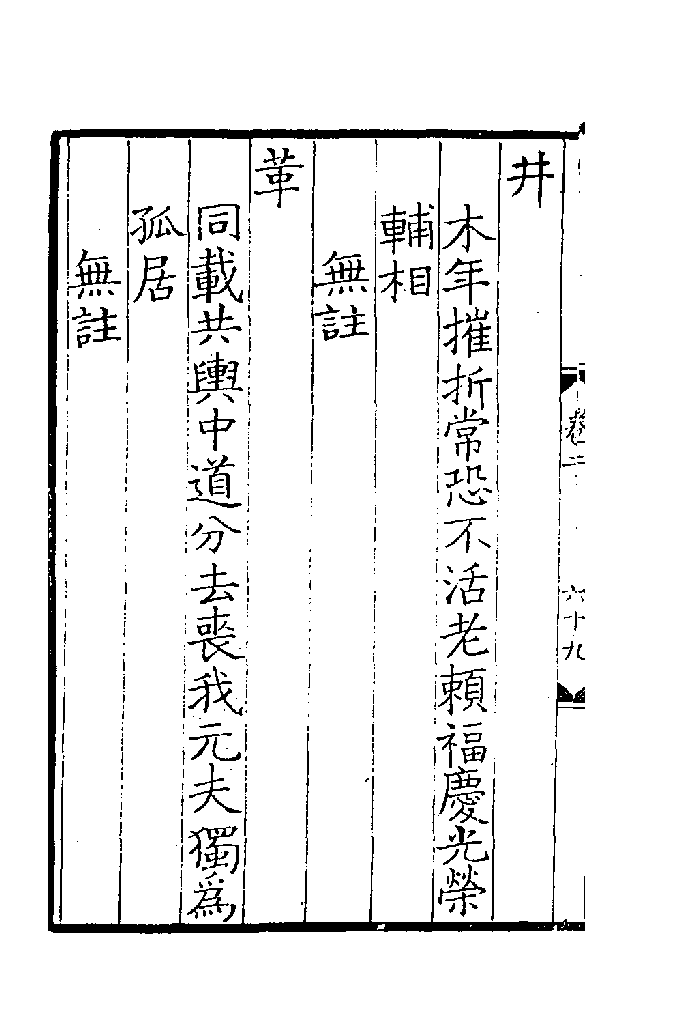 井
木年摧折常恐不活老頼福慶光榮
輔相
無註
革
同載共輿中道分去喪我元夫獨爲
孤居
無註
卷二
六十九